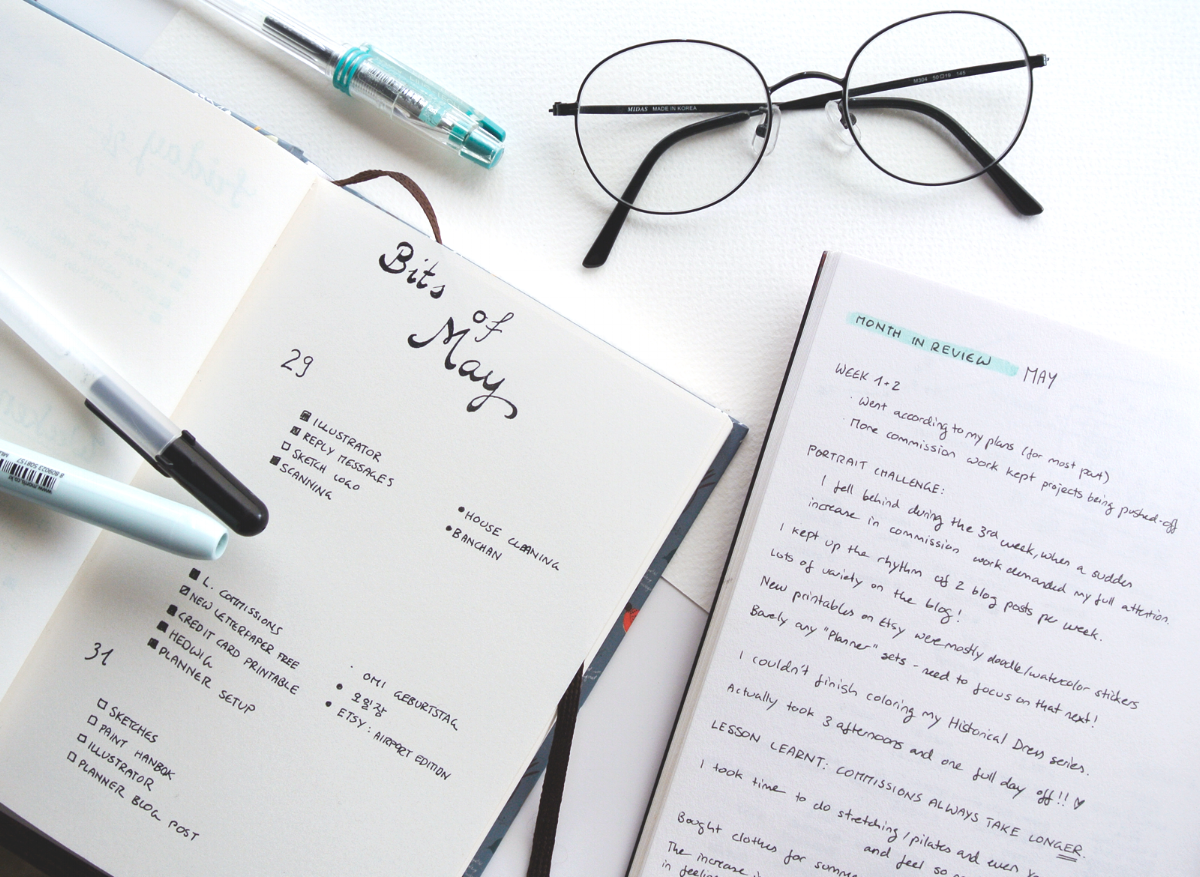 MIDAS MADE IN KOREA
Bits
of
May
29
ILLUSTRATOR
REPLY MESSAGES
SKETCH LOGO
SCANNING
• HOUSE CLEANING
• BANCHAN
L. COMMISSIONS
NEW LETTERPAPER FREE
CREDIT CARD PRINTABLE
HEDWIG
PLANNER SETUP
· OMI GEBURTSTAG
• ETSY: AIRPORT EDITION
31
SKETCHES
PAINT HANBOK
ILLUSTRATOR
PLANNER BLOG POST
MONTH IN REVIEW MAY
WEEK 1+2
· Went according to my plans (for most part)
· More commission work kept projects being pushed-off
PORTRAIT CHALLENGE:
I fell behind during the 3rd week, when a sudden
increase in commission work demanded my full attention.
I kept up the rhythm of 2 blog posts per week.
Lots of variety on the blog!
New printables on Etsy were mostly doodle/watercolor stickers
Barely any "Planner" sets - need to focus on that next!
I couldn't finish coloring my Historical Dress series.
Actually took 3 afternoons and one full day off!! ♥
LESSON LEARNT: COMMISSIONS ALWAYS TAKE LONGER.
I took time to do stretching/pilates and even
and feel so
Bought clothes for summer
The increase
in feeling